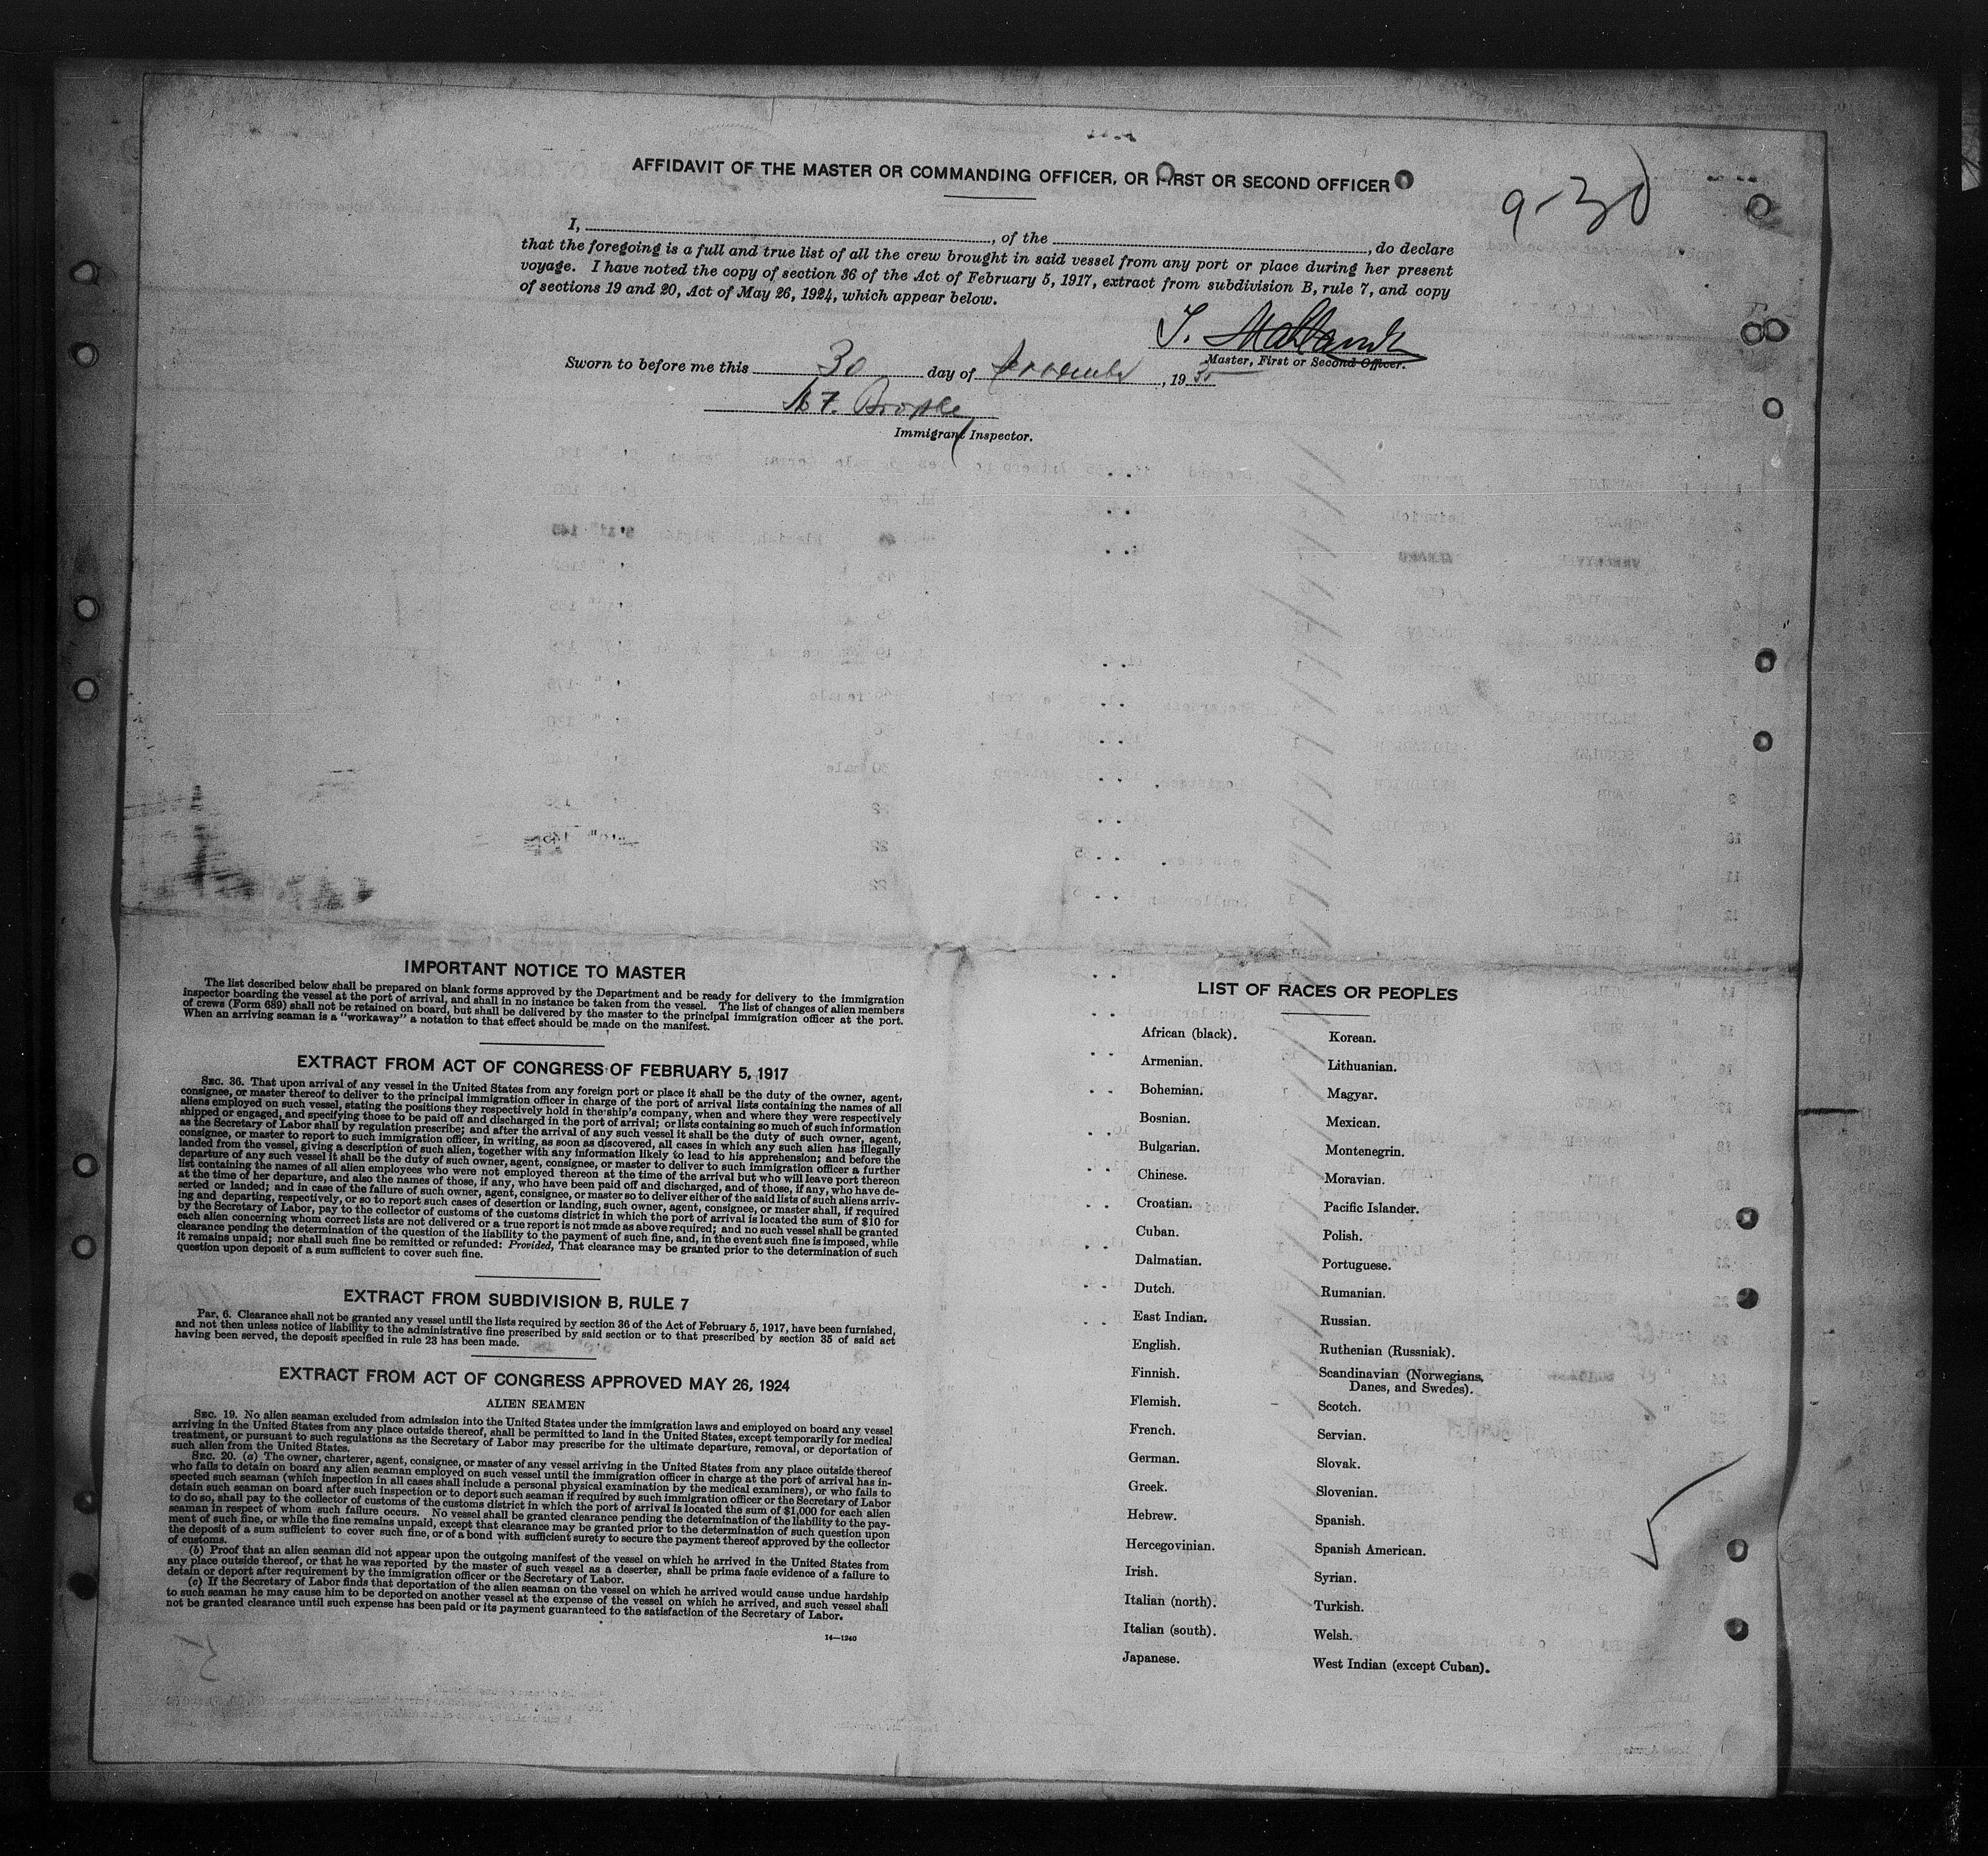 AFFIDAVIT OF THE MASTER OR COMMANDING OFFICER, OR FIRST OR SECOND OFFICER
9-30
I, , of the , do declare
that the foregoing is a full and true list of all the crew brought in said vessel from any port or place during her present
voyage. I have noted the copy of section 36 of the Act of February 5, 1917, extract from subdivision B, rule 7, and copy
of sections 19 and 20, Act of May 26, 1924, which appear below.
Master, First or Second Officer.
Sworn to before me this 30 day of November, 1935
Immigrant Inspector.
IMPORTANT NOTICE TO MASTER
The list described below shall be prepared on blank forms approved by the Department and be ready for delivery to the immigration
inspector boarding the vessel at the port of arrival, and shall in no instance be taken from the vessel. The list of changes of alien members
of crews (Form 689) shall not be retained on board, but shall be delivered by the master to the principal immigration officer at the port.
When an arriving seaman is a "workaway" a notation to that effect should be made on the manifest.
EXTRACT FROM ACT OF CONGRESS OF FEBRUARY 5, 1917
SEC. 36. That upon arrival of any vessel in the United States from any foreign port or place it shall be the duty of the owner, agent,
consignee, or master thereof to deliver to the principal immigration officer in charge of the port of arrival lists containing the names of all
aliens employed on such vessel, stating the positions they respectively hold in the ship's company, when and where they were respectively
shipped or engaged, and specifying those to be paid off and discharged in the port of arrival; or lists containing so much of such information
as the Secretary of Labor shall by regulation prescribe; and after the arrival of any such vessel it shall be the duty of such owner, agent,
consignee, or master to report to such immigration officer, in writing, as soon as discovered, all cases in which any such alien has illegally
landed from the vessel, giving a description of such alien, together with any information likely to lead to his apprehension; and before the
departure of any such vessel it shall be the duty of such owner, agent, consignee, or master to deliver to such immigration officer a further
list containing the names of all alien employees who were not employed thereon at the time of the arrival but who will leave port thereon
at the time of her departure, and also the names of those, if any, who have been paid off and discharged, and of those, if any, who have de-
serted or landed; and in case of the failure of such owner, agent, consignee, or master so to deliver either of the said lists of such aliens arriv-
ing and departing, respectively, or so to report such cases of desertion or landing, such owner, agent, consignee, or master shall, if required
by the Secretary of Labor, pay to the collector of customs of the customs district in which the port of arrival is located the sum of $10 for
each alien concerning whom correct lists are not delivered or a true report is not made as above required; and no such vessel shall be granted
clearance pending the determination of the question of the liability to the payment of such fine, and, in the event such fine is imposed, while
it remains unpaid; nor shall such fine be remitted or refunded: Provided, That clearance may be granted prior to the determination of such
question upon deposit of a sum sufficient to cover such fine.
EXTRACT FROM SUBDIVISION B, RULE 7
Par. 6. Clearance shall not be granted any vessel until the lists required by section 36 of the Act of February 5, 1917, have been furnished,
and not then unless notice of liability to the administrative fine prescribed by said section or to that prescribed by section 35 of said act
having been served, the deposit specified in rule 23 has been made.
EXTRACT FROM ACT OF CONGRESS APPROVED MAY 26, 1924
ALIEN SEAMEN
SEC. 19. No alien seaman excluded from admission into the United States under the immigration laws and employed on board any vessel
arriving in the United States from any place outside thereof, shall be permitted to land in the United States, except temporarily for medical
treatment, or pursuant to such regulations as the Secretary of Labor may prescribe for the ultimate departure, removal, or deportation of
such alien from the United States.
SEC. 20. (a) The owner, charterer, agent, consignee, or master of any vessel arriving in the United States from any place outside thereof
who fails to detain on board any alien seaman employed on such vessel until the immigration officer in charge at the port of arrival has in-
spected such seaman (which inspection in all cases shall include a personal physical examination by the medical examiners), or who fails to
detain such seaman on board after such inspection or to deport such seaman if required by such immigration officer or the Secretary of Labor
to do so, shall pay to the collector of customs of the customs district in which the port of arrival is located the sum of $1,000 for each alien
seaman in respect of whom such failure occurs. No vessel shall be granted clearance pending the determination of the liability to the pay-
ment of such fine, or while the fine remains unpaid, except that clearance may be granted prior to the determination of such question upon
the deposit of a sum sufficient to cover such fine, or of a bond with sufficient surety to secure the payment thereof approved by the collector
of customs.
(b) Proof that an alien seaman did not appear upon the outgoing manifest of the vessel on which he arrived in the United States from
any place outside thereof, or that he was reported by the master of such vessel as a deserter, shall be prima facie evidence of a failure to
detain or deport after requirement by the immigration officer or the Secretary of Labor.
(c) If the Secretary of Labor finds that deportation of the alien seaman on the vessel on which he arrived would cause undue hardship
to such seaman he may cause him to be deported on another vessel at the expense of the vessel on which he arrived, and such vessel shall
not be granted clearance until such expense has been paid or its payment guaranteed to the satisfaction of the Secretary of Labor.
14—1240
LIST OF RACES OR PEOPLES
African (black).
Armenian.
Bohemian.
Bosnian.
Bulgarian.
Chinese.
Croatian.
Cuban.
Dalmatian.
Dutch.
East Indian.
English.
Finnish.
Flemish.
French.
German.
Greek.
Hebrew.
Hercegovinian.
Irish.
Italian (north).
Italian (south).
Japanese.
Korean.
Lithuanian.
Magyar.
Mexican.
Montenegrin.
Moravian.
Pacific Islander.
Polish.
Portuguese.
Rumanian.
Russian.
Ruthenian (Russniak).
Scandinavian (Norwegians,
Danes, and Swedes).
Scotch.
Servian.
Slovak.
Slovenian.
Spanish.
Spanish American.
Syrian.
Turkish.
Welsh.
West Indian (except Cuban).